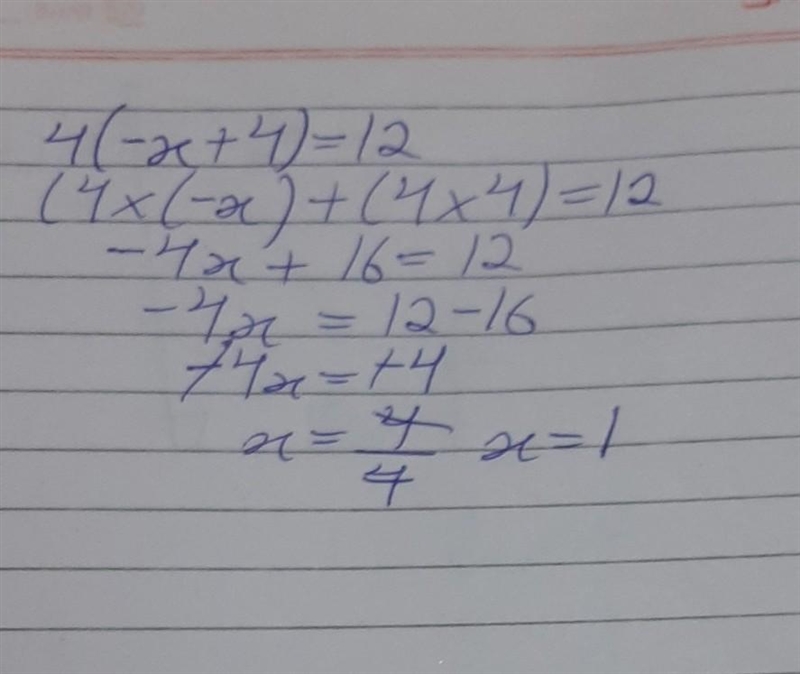 4(-x+4)=12
(4×(-x)+(4×4)=12
-4x+16=12
-4x=12-16
-4x=-4
x=4/4 x=1